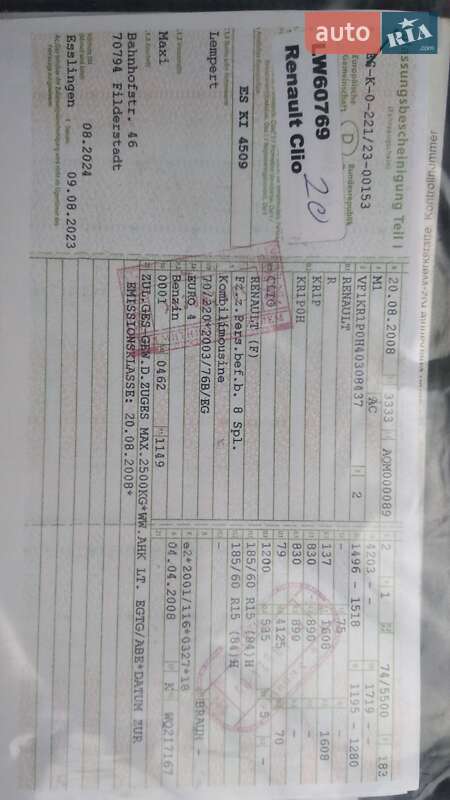 auto RIA .com
Zulassungsbescheinigung Teil I
(Fahrzeugschein)
Europäische Gemeinschaft
D
Bundesrepublik
K-0-221/23-00153
LW60769
Renault Clio
20
ES KI 4509
Lempert
Maxi
Bahnhofstr. 46
70794 Filderstadt
08.2024
Esslingen
09.08.2023
20.08.2008
3333
AQM000089
M1
AC
VF1KR1P0H40308437
2
RENAULT
R
KR1P
KR1P0H
CLIO
RENAULT (F)
Fz.z.Pers.bef.b. 8 Spl.
Kombilimousine
70/220*2003/76B/EG
EURO 4
Benzin
0001
0462
1149
ZUL.GES-GEW.D.ZUGES MAX.2500KG*WW.AHK LT. EGTG/ABE*DATUM ZUR
EMISSIONSKLASSE: 20.08.2008*
2
1
74/5500
183
4203
-
-
1719
-
-
1496
-
1518
1195
-
1280
-
75
137
1608
1608
830
890
830
890
79
4125
70
1200
535
5
-
185/60 R15 (84)H
185/60 R15 (84)H
-
BRAUN
-
e2*2001/116*0327*18
04.04.2008
K
WQ217167